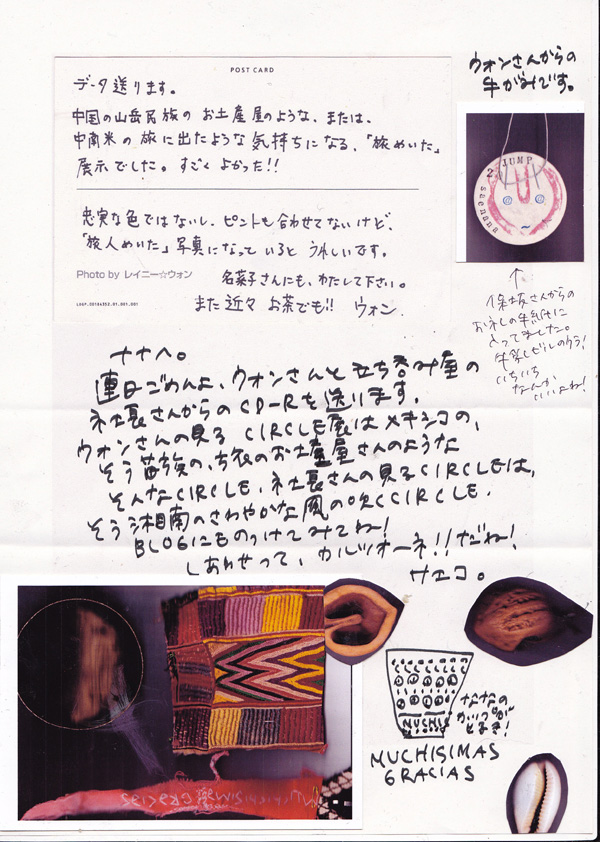 POST CARD
データ送ります。
中国の山岳民族の お土産屋のような、または、
中南米の旅に出たような気持ちになる、「旅めいた」
展示でした。すごく よかった!!
忠実な色ではないし、ピントも合わせてないけど、
「旅人めいた」写真になって いると うれしいです。
Photo by レイニー☆ウォン
名菜子さんにも、わたして下さい。
また 近々 お茶でも!! ウォン
LOGP.00104352.01.001.001
ウォンさんからの
手がみです。
2. JUMP
suenana
↑
保坂さんからの
おネしの
とってました。
いちいち
なんか
いいよね!
ナナヘ。
連日ごめんよ、ウォンさんと立ち呑み屋の
ネ土長さんからのCD-Rを送ります。
ウォンさんの見る CIRCLE展はメキシコの、
そう苗族の、お土産屋さんのような
そんなCIRCLE、ネ土長さんの見るCIRCLEは、
そう湘南のさわやかな風の吹くCIRCLE.
BLOGにものっけてみてね!
しあわせって、カルツォーネ!!だね!
サエコ。
MUCHIS
ななの
MUCHISIMAS
GRACIAS
MUCHISIMAS GRACIAS